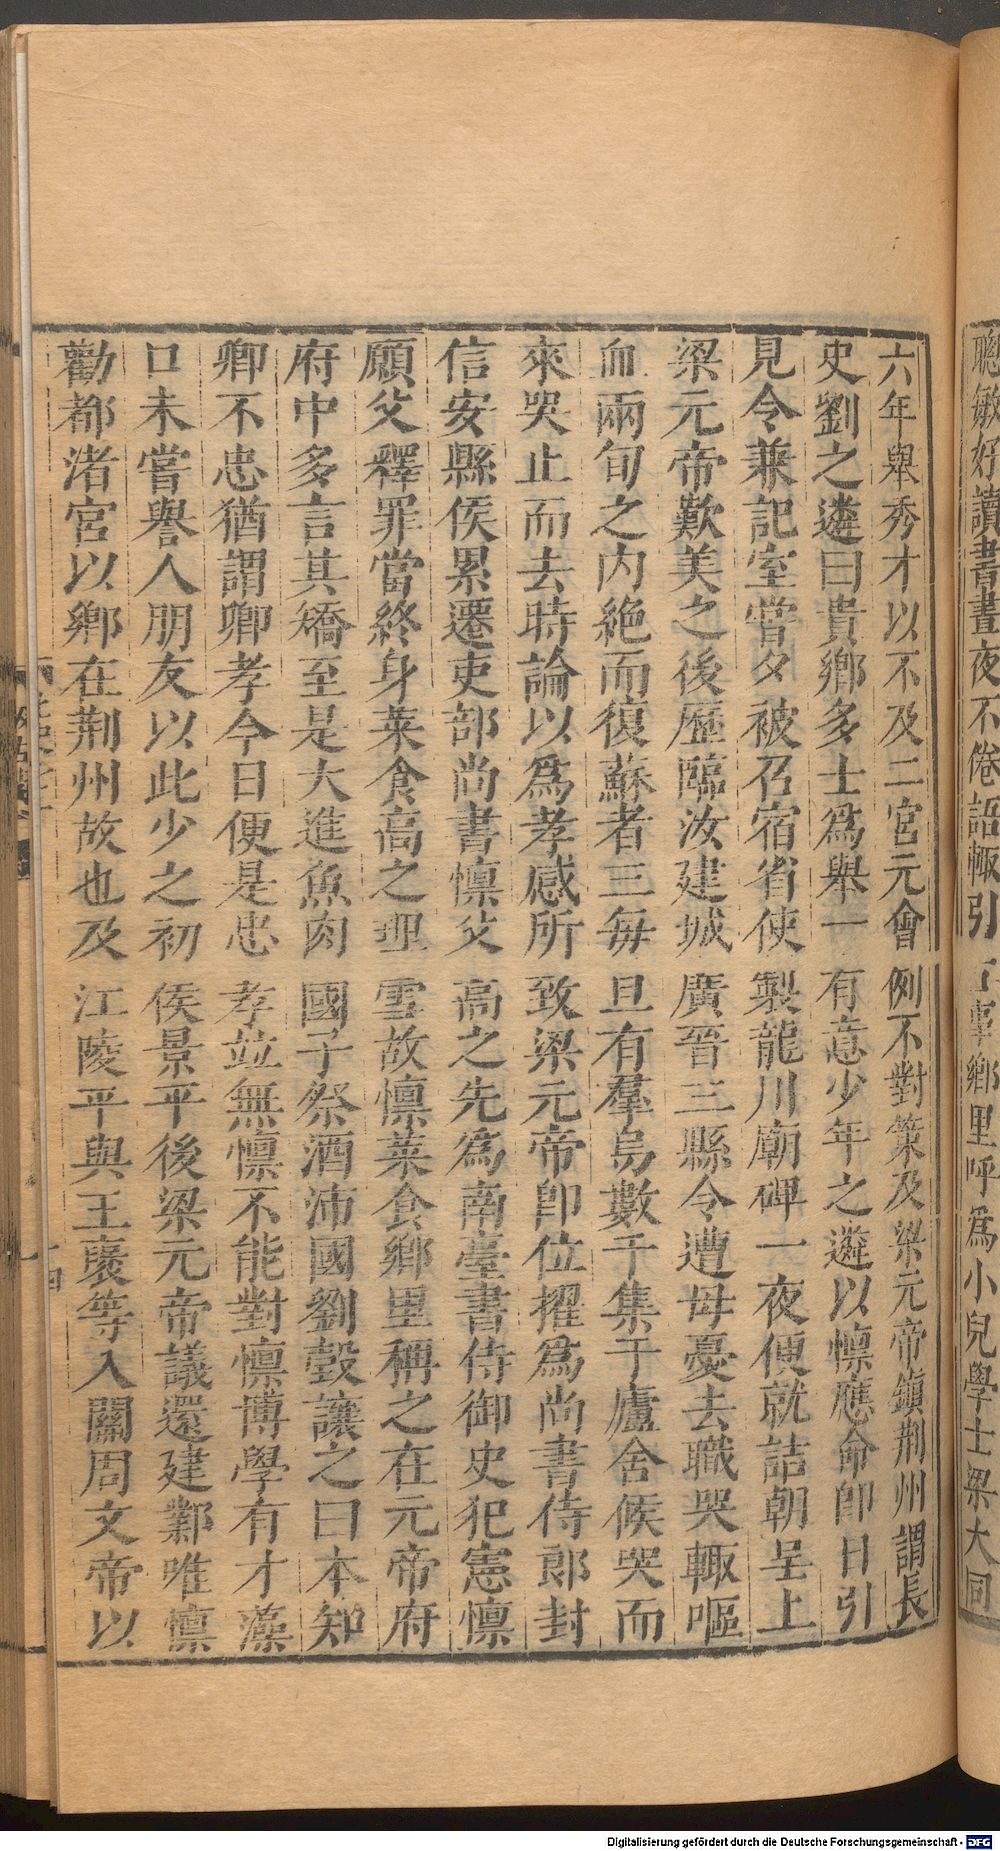 聰敏好讀書晝夜不倦語輒引古事鄉里呼為小兒學士梁大同
六年舉秀才以不及二宮元會例不對策及梁元帝鎮荆州謂長
史劉之遴曰貴鄉多士為舉一有意少年之遴以懍應命卽日引
見令兼記室嘗夕被召宿省使製龍川廟碑一夜便就詰朝呈上
梁元帝歎美之後歷臨汝建城廣晉三縣令遭母憂去職哭輒嘔
血兩旬之內絶而復蘇者三每旦有羣烏數千集于廬舍候哭而
來哭止而去時論以爲孝感所致梁元帝卽位擢爲尚書侍郎封
信安縣侯累遷吏部尚書懍父高之先爲南臺書侍御史犯憲懍
願父釋罪當終身菜食高之理雪故懍菜食鄉里稱之在元帝府
府中多言其矯至是大進魚肉國子祭酒沛國劉瑴讓之曰本知
卿不忠猶謂卿孝今日便是忠孝並無懍不能對懍博學有才藻
口未嘗譽人朋友以此少之初侯景平後梁元帝議還建鄴唯懍
勸都渚宮以鄉在荆州故也及江陵平與王褒等入關周文帝以
十四
Digitalisierung gefördert durch die Deutsche Forschungsgemeinschaft - DFG